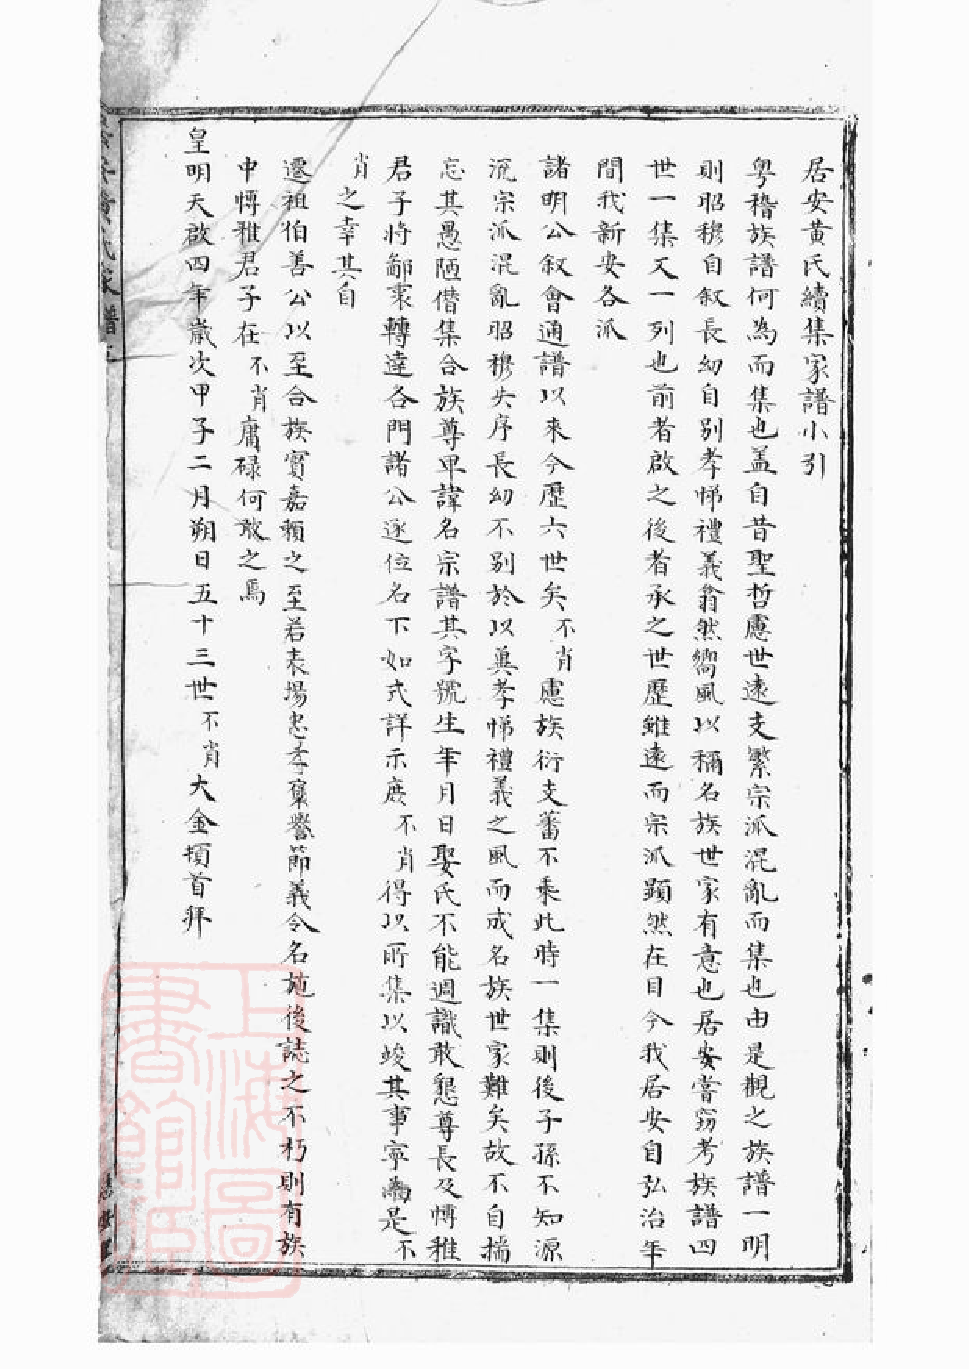 居安黄氏續集家譜小引
粤稽族譜何為而集也盖自昔聖哲慮世遠支繁宗派混亂而集也由是觀之族譜一明
則昭穆自叙長幼自别孝悌禮義翕然嚮風以稱名族世家有意也居安嘗窃考族譜四
世一集又一列也前者啟之後者承之世歷雖遠而宗派顯然在目今我居安自弘治年
間我新安各派
諸明公叙會通譜以來今歷六世矣不肖慮族衍支蕃不乘此時一集則後子孫不知源
流宗派混亂昭穆失序長幼不别於以奠孝悌禮義之風而成名族世家難矣故不自揣
忘其愚陋僭集合族尊卑諱名宗譜其字號生年月日娶氏不能週識敢懇尊長及愽雅
君子將鄙衷轉達各門諸公逐位名下如式詳示庶不肖得以所集以竣其事寧是不
肖之幸其自
遷祖伯善公以至合族實嘉賴之至若表揚忠孝節義令名施後誌之不朽則有族
中愽雅君子在不肖庸碌何敢之焉
皇明天啟四年歲次甲子二月朔日五十三世不肖大金頓首拜
黄氏家譜
上海圖書館藏